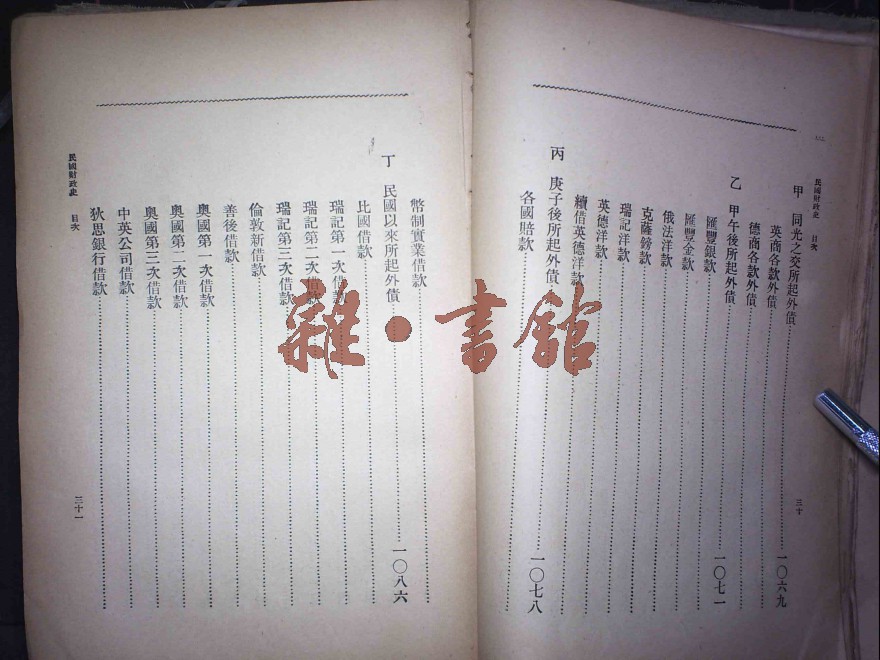 民國財政史 目次
三十
甲 同光之交所起外債 一〇六九
英商各款外債
德商各款外債
乙 甲午後所起外債 一〇七一
匯豐銀款
匯豐金款
俄法洋款
克薩鎊款
瑞記洋款
英德洋款
續借英德洋款
丙 庚子後所起外債
各國賠款 一〇七八
幣制實業借款
丁 民國以來所起外債 一〇八六
比國借款
瑞記第一次借款
瑞記第二次借款
瑞記第三次借款
倫敦新借款
善後借款
奧國第一次借款
奧國第二次借款
奧國第三次借款
中英公司借款
狄思銀行借款
民國財政史 目次
三十一
雜·書館